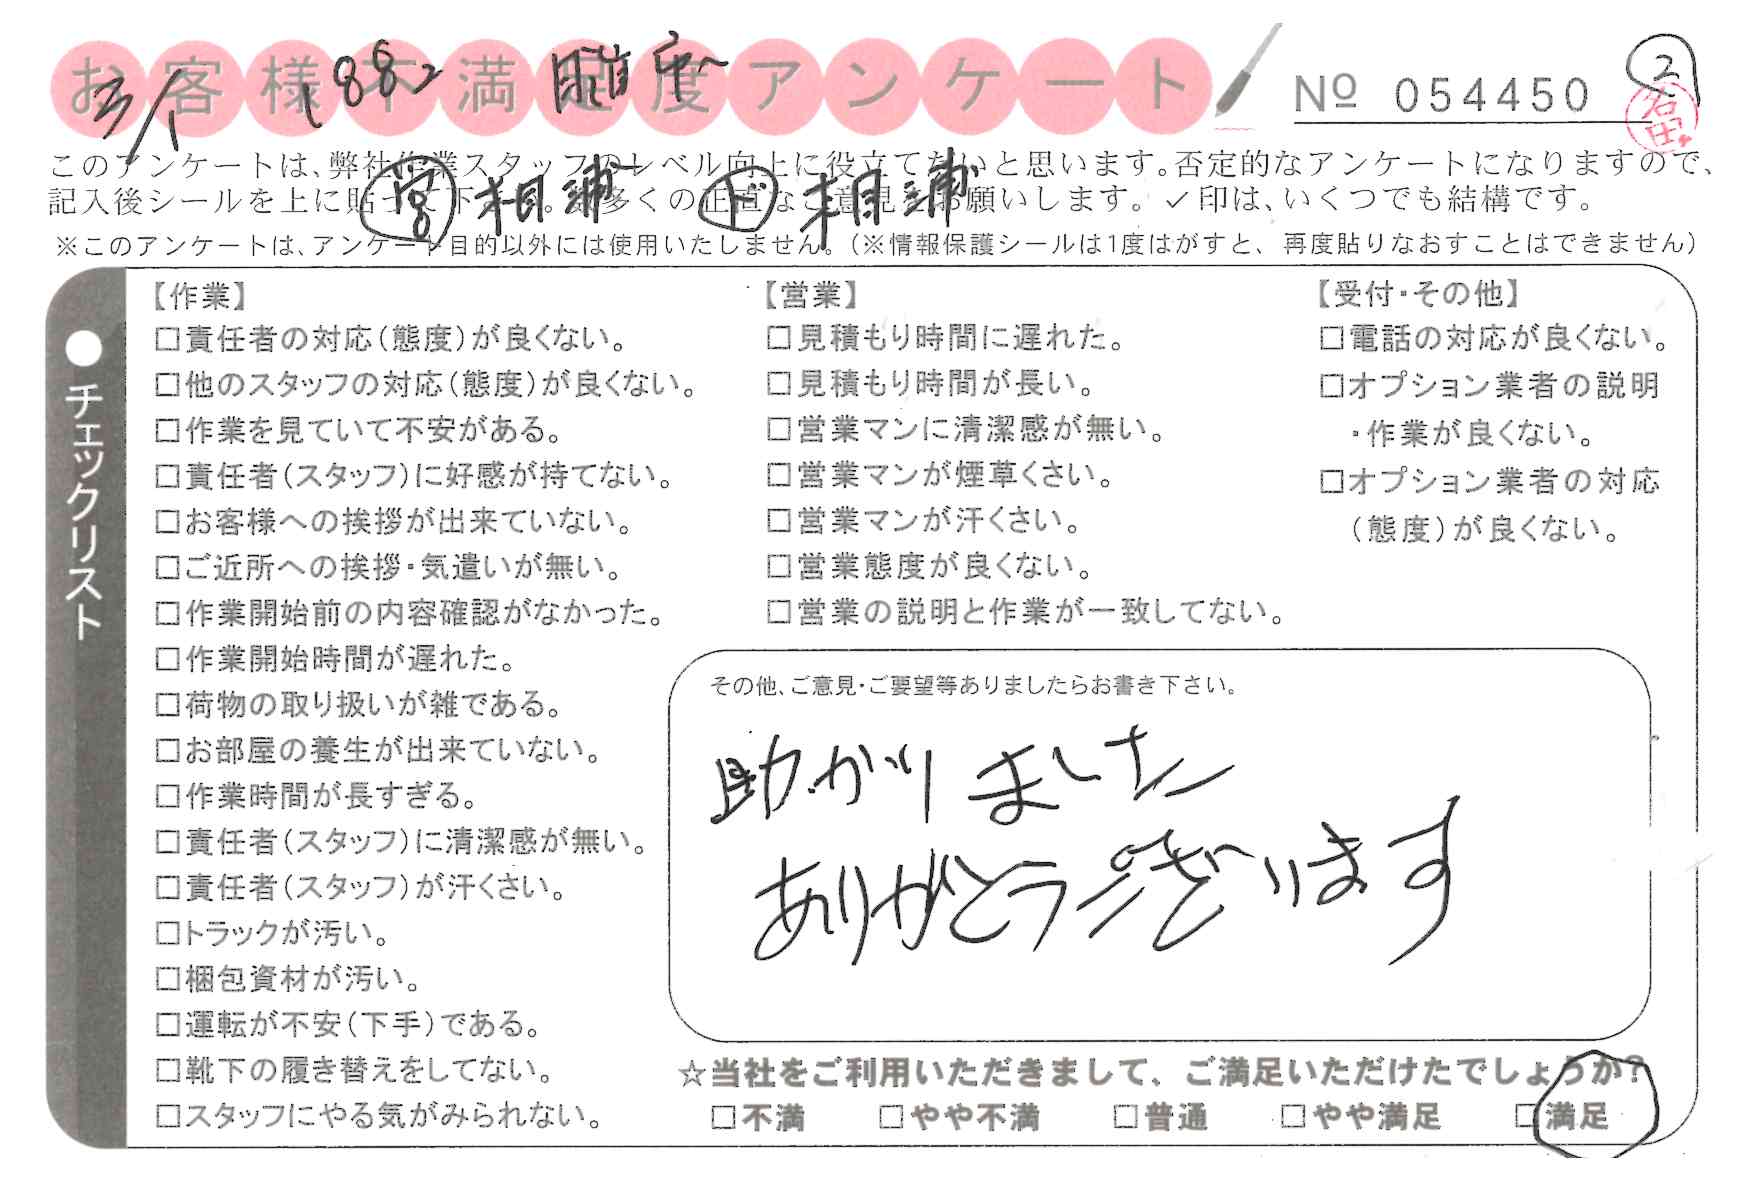 お客様不満足度アンケート
3/1 1882
№ 054450
2
名田
このアンケートは、弊社作業スタッフのレベル向上に役立てたいと思います。否定的なアンケートになりますので、
記入後シールを上に貼って下さい。数多くの正直なご意見をお願いします。✓印は、いくつでも結構です。
営 相浦 ド 相浦
※このアンケートは、アンケート目的以外には使用いたしません。（※情報保護シールは1度はがすと、再度貼りなおすことはできません）
●チェックリスト
【作業】
□責任者の対応（態度）が良くない。
□他のスタッフの対応（態度）が良くない。
□作業を見ていて不安がある。
□責任者（スタッフ）に好感が持てない。
□お客様への挨拶が出来ていない。
□ご近所への挨拶・気遣いが無い。
□作業開始前の内容確認がなかった。
□作業開始時間が遅れた。
□荷物の取り扱いが雑である。
□お部屋の養生が出来ていない。
□作業時間が長すぎる。
□責任者（スタッフ）に清潔感が無い。
□責任者（スタッフ）が汗くさい。
□トラックが汚い。
□梱包資材が汚い。
□運転が不安（下手）である。
□靴下の履き替えをしてない。
□スタッフにやる気がみられない。
【営業】
□見積もり時間に遅れた。
□見積もり時間が長い。
□営業マンに清潔感が無い。
□営業マンが煙草くさい。
□営業マンが汗くさい。
□営業態度が良くない。
□営業の説明と作業が一致してない。
【受付・その他】
□電話の対応が良くない。
□オプション業者の説明
・作業が良くない。
□オプション業者の対応
（態度）が良くない。
その他、ご意見・ご要望等ありましたらお書き下さい。
助かりました
ありがとうございます
☆当社をご利用いただきまして、ご満足いただけたでしょうか？
□不満 □やや不満 □普通 □やや満足 □満足